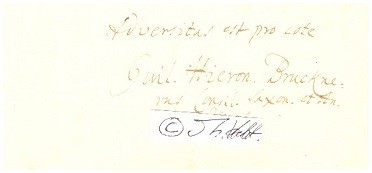 Adversitas est pro cote
Guil. Hieron. Bruckne-
rus Consil. Saxon.
©